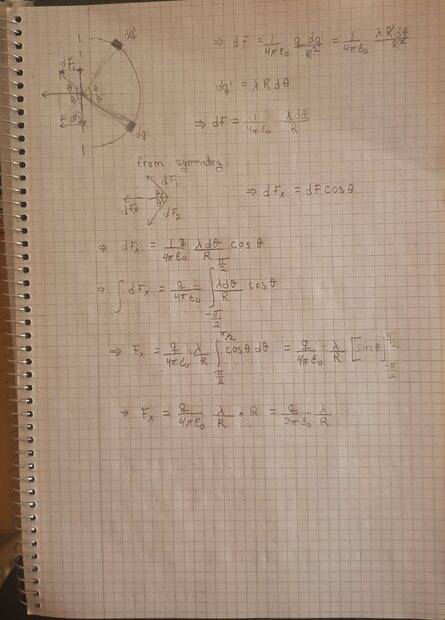 dq' ⇒ dF = 1/4πε₀ q dq'/R² = 1/4πε₀ λRdθ/R²
dF₁
θ θ
θ θ
dq' = λRdθ
F dF₂
dq'
⇒ dF = 1/4πε₀ λdθ/R
from symmetry:
dF₁
dFx θ θ ⇒ dFx = dF cosθ
dF₂
⇒ dFx = 1 q/4πε₀ λdθ/R cosθ
⇒ ∫ dFx = q/4πε₀ ∫_{-π/2}^{π/2} λdθ/R cosθ
⇒ Fx = q/4πε₀ · λ/R ∫_{-π/2}^{π/2} cosθ dθ = q/4πε₀ · λ/R [sinθ]_{-π/2}^{π/2}
⇒ Fx = q/4πε₀ λ/R · 2 = q/2πε₀ λ/R